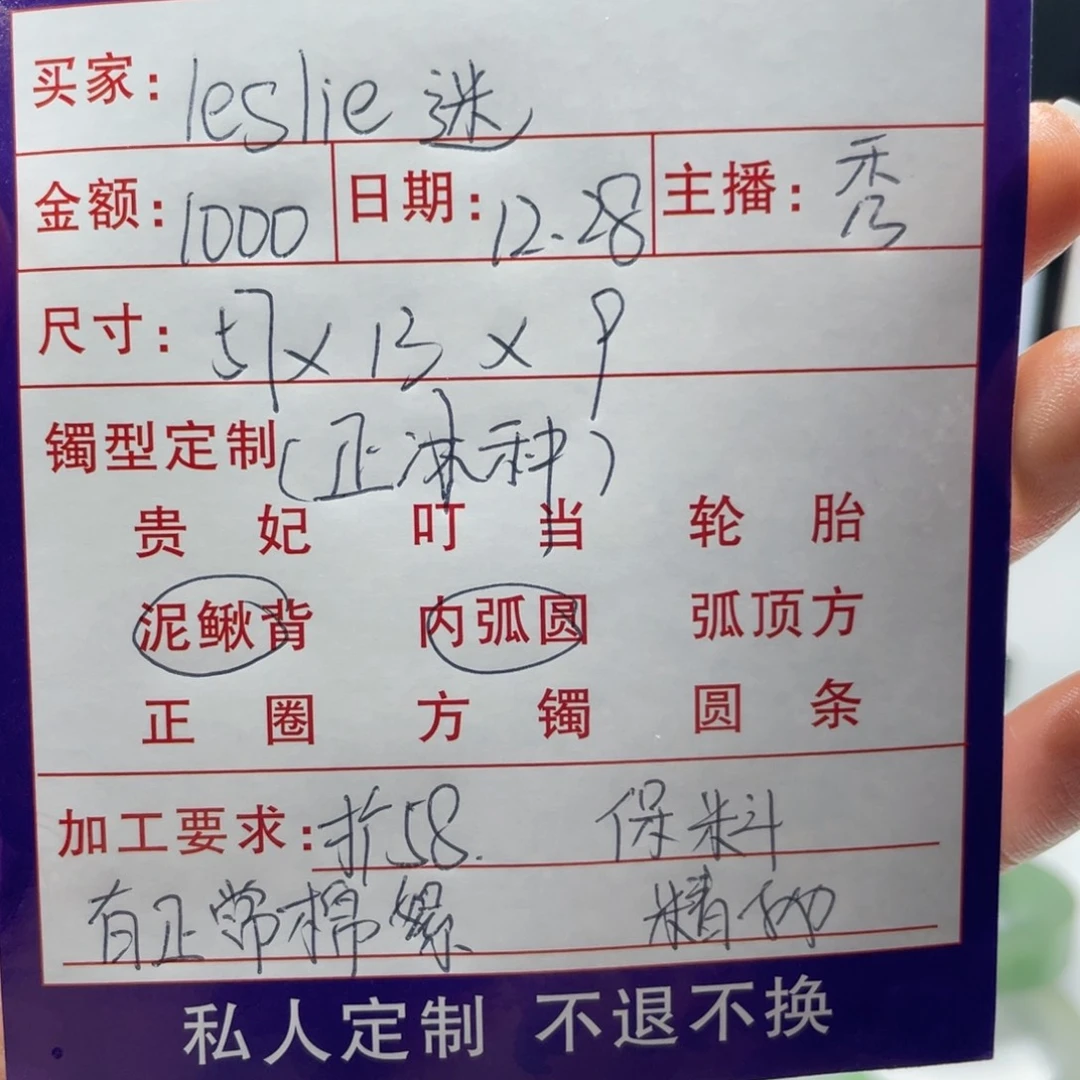 买家: leslie 迷
金额: 1000 日期: 12.28 主播: 秀
尺寸: 57×13×9
镯型定制(正淋种)
贵妃 叮当 轮胎
泥鳅背 内弧圆 弧顶方
正圈 方镯 圆条
加工要求: 扩58. 保料
有正常棉絮 精抛
私人定制 不退不换